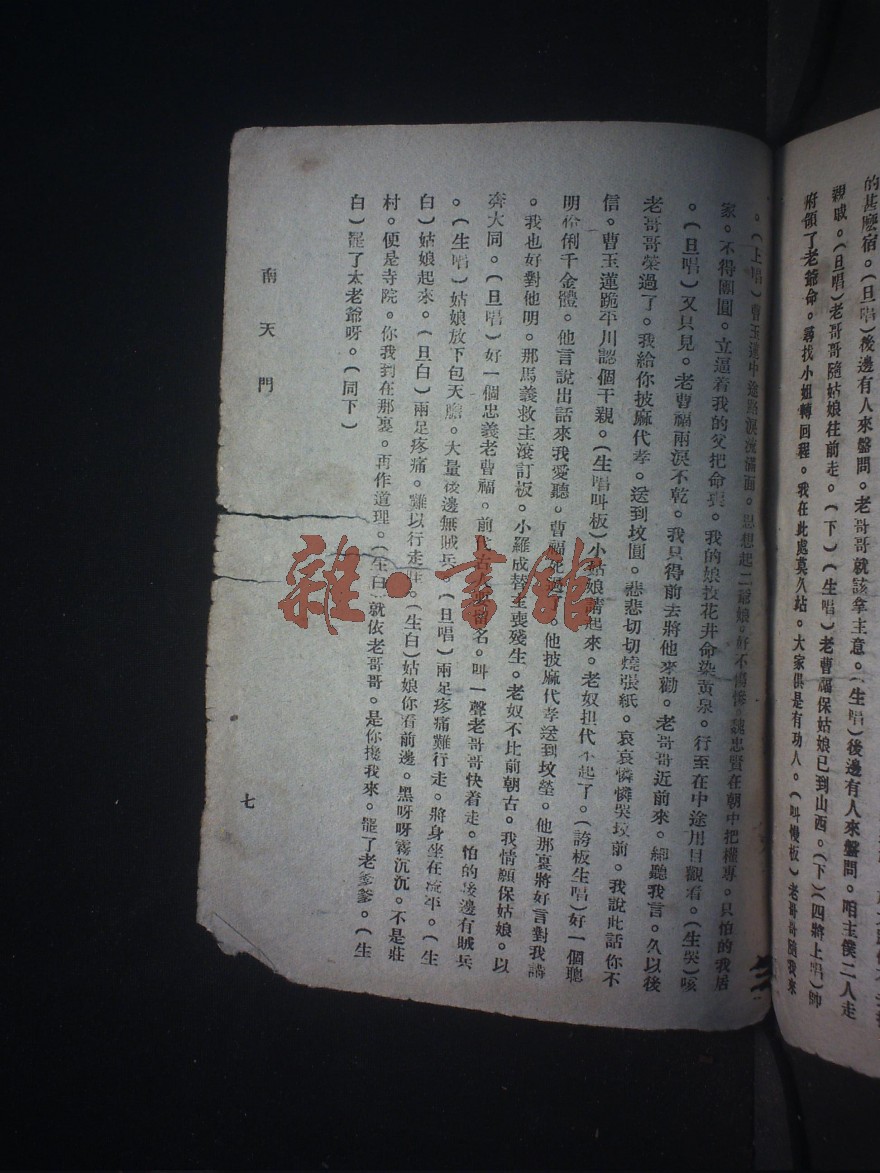 的甚麽宿。(旦唱)後邊有人來盤問。老哥哥就該拿主意。(生唱)後邊有人來盤問。咱主僕二人走
親戚。(旦唱)老哥哥隨姑娘往前走。(下)(生唱)老曹福保姑娘已到山西。(下)(四將上唱)帥
府領了老爺命。尋找小姐轉回程。我在此處莫久站。大家俱是有功人。(叫慢板)老哥哥隨我來
。(上唱)曹玉蓮中途路淚流滿面。思想起二爺娘。好不傷慘。魏忠賢在朝中把權專。只怕的我居
家。不得團圓。立逼着我的父把命喪。我的娘投花井命染黃泉。行至在中途用目觀看。(生哭)咳
。(旦唱)又只見。老曹福兩淚不乾。我只得前去將他來勸。老哥哥近前來。細聽我言。久以後
老哥哥榮過了。我給你披麻代孝。送到坟園。悲悲切切燒張紙。哀哀憐憐哭坟前。我說此話你不
信。曹玉蓮跪平川認個干親。(生唱叫板)小姑娘請起來。老奴担代不起了。(誇板生唱)好一個聰
明伶俐千金體。他言說出話來我愛聽。曹福死過。他披麻代孝送到坟塋。他那裏將好言對我講
。我也好對他明。那馬義救主滾訂板。小羅成替主喪殘生。老奴不比前朝古。我情願保姑娘。以
奔大同。(旦唱)好一個忠義老曹福。前古人留名。叫一聲老哥哥快着走。怕的後邊有賊兵
。(生唱)姑娘放下包天膽。大量後邊無賊兵。(旦唱)兩足疼痛難行走。將身坐在流平。(生
白)姑娘起來。(旦白)兩足疼痛。難以行走。(生白)姑娘你看前邊。黑呀呀霧沉沉。不是莊
村。便是寺院。你我到在那裏。再作道理。就依老哥哥。是你攙我來。罷了老爹爹。(生
白)罷了太老爺呀。(同下)
南天門
七
雜·書館